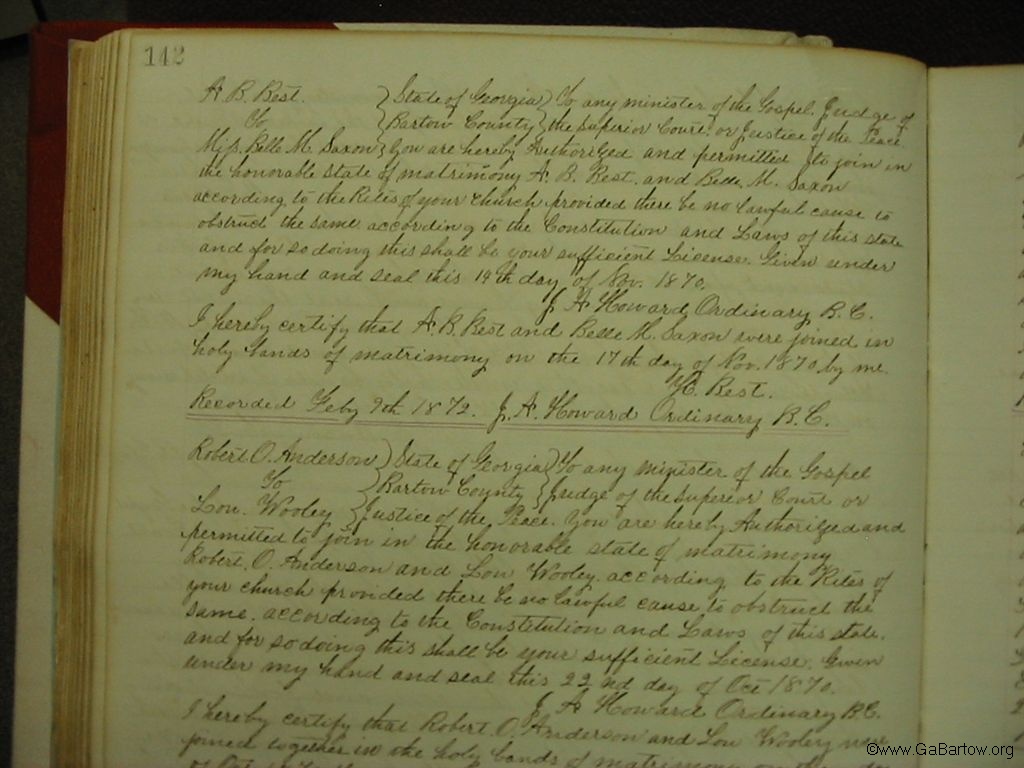 142
A. B. Best. } State of Georgia } To any minister of the Gospel, Judge of
To } Bartow County } the Superior Court, or Justice of the Peace.
Miss. Belle M. Saxon } You are hereby Authorized and permitted to join in
the honorable state of matrimony A. B. Best. and Belle. M. Saxon
according to the Rites of your church provided there be no lawful cause to
obstruct the same according to the Constitution and Laws of this state
and for so doing this shall be your sufficient License. Given under
my hand and seal this 14th day of Nov. 1870.
J. A. Howard Ordinary B. C.
I hereby certify that A. B. Best and Belle M. Saxon were joined in
holy bands of matrimony on the 17th day of Nov. 1870, by me.
H. Best.
Recorded Feby 9th 1872. J. A. Howard Ordinary B. C.
Robert O. Anderson } State of Georgia } To any minister of the Gospel
To } Bartow County } Judge of the Superior Court or
Lou. Wooley } Justice of the Peace. You are hereby Authorized and
permitted to join in the honorable state of matrimony
Robert. O. Anderson and Lou Wooley. according to the Rites of
your church provided there be no lawful cause to obstruct the
same. according to the Constitution and Laws of this state.
and for so doing this shall be your sufficient License. Given
under my hand and seal this 22nd day of Oct 1870.
J. A. Howard Ordinary B. C.
I hereby certify that Robert O. Anderson and Lou Wooley were
joined together in the holy bands of matrimony on the
©www.GaBartow.org